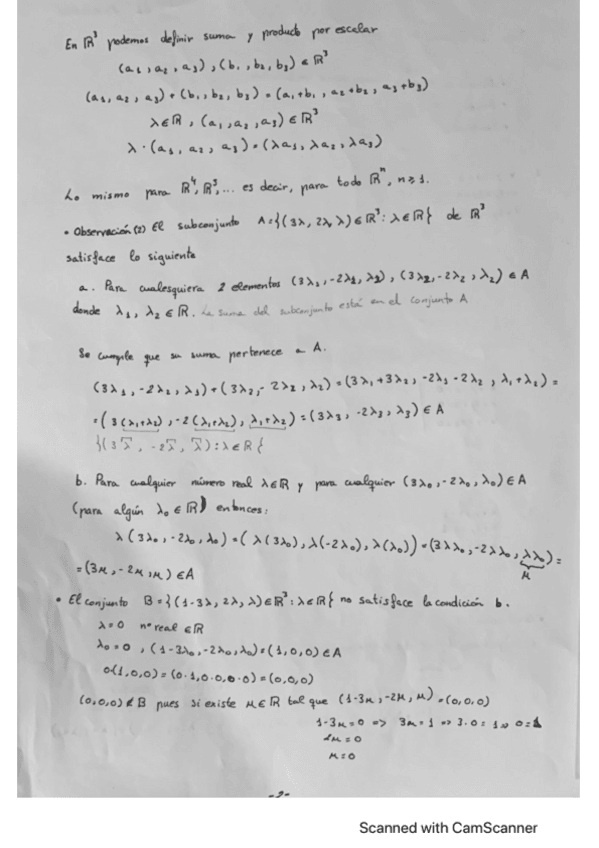 En ℝ³ podemos definir suma y producto por escalar
(a₁, a₂, a₃), (b₁, b₂, b₃) ∈ ℝ³
(a₁, a₂, a₃) + (b₁, b₂, b₃) = (a₁+b₁, a₂+b₂, a₃+b₃)
λ∈ℝ, (a₁, a₂, a₃) ∈ ℝ³
λ·(a₁, a₂, a₃) = (λa₁, λa₂, λa₃)
Lo mismo para ℝ⁴, ℝ⁵, ... es decir, para todo ℝⁿ, n≥1.
• Observación (2) El subconjunto A={(3λ, 2λ, λ) ∈ ℝ³: λ∈ℝ} de ℝ³
satisface lo siguiente
a. Para cualesquiera 2 elementos (3λ₁, -2λ₁, λ₁), (3λ₂, -2λ₂, λ₂) ∈ A
donde λ₁, λ₂ ∈ ℝ. La suma del subconjunto está en el conjunto A
Se cumple que su suma pertenece a A.
(3λ₁, -2λ₁, λ₁) + (3λ₂, -2λ₂, λ₂) = (3λ₁+3λ₂, -2λ₁-2λ₂, λ₁+λ₂) =
= (3(λ₁+λ₂), -2(λ₁+λ₂), λ₁+λ₂) = (3λ₃, -2λ₃, λ₃) ∈ A
{(3λ̄, -2λ̄, λ̄): λ∈ℝ}
b. Para cualquier número real λ∈ℝ y para cualquier (3λ₀, -2λ₀, λ₀) ∈ A
(para algún λ₀ ∈ ℝ) entonces:
λ(3λ₀, -2λ₀, λ₀) = (λ(3λ₀), λ(-2λ₀), λ(λ₀)) = (3λλ₀, -2λλ₀, λλ₀) =
μ
= (3μ, -2μ, μ) ∈ A
• El conjunto B={(1-3λ, 2λ, λ) ∈ ℝ³: λ∈ℝ} no satisface la condición b.
λ=0 nº real ∈ℝ
λ₀=0, (1-3λ₀, -2λ₀, λ₀) = (1,0,0) ∈ A
0(1,0,0) = (0·1, 0·0, 0·0) = (0,0,0)
(0,0,0) ∉ B pues si existe μ∈ℝ tal que (1-3μ, -2μ, μ) = (0,0,0)
1-3μ=0 => 3μ=1 => 3·0=1 => 0=1
2μ=0
μ=0
-2-
Scanned with CamScanner